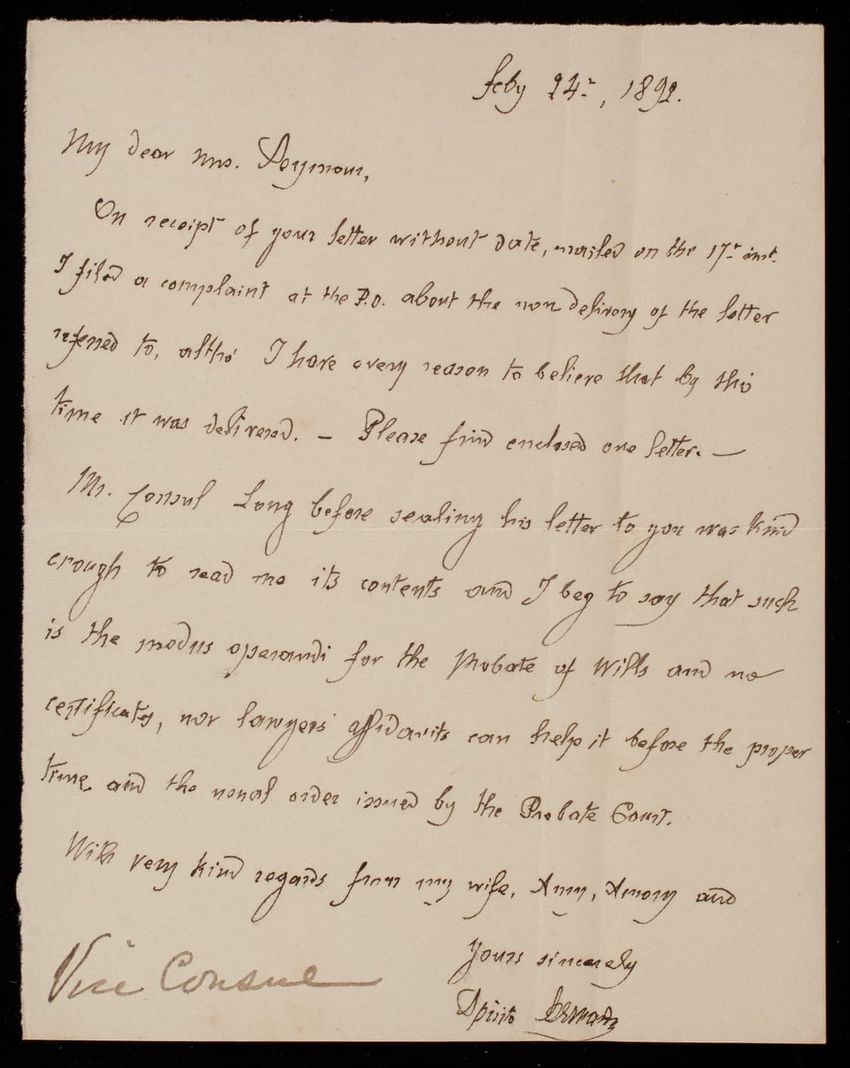 Feby 24th, 1892.
My dear Mrs. Seymour,
On receipt of your letter without date, mailed on the 17th inst.
I filed a complaint at the P.O. about the non delivery of the letter
refered to, altho' I have every reason to believe that by this
time it was delivered. – Please find enclosed one letter. —
Mr. Consul Long before sealing his letter to you was kind
enough to read me its contents and I beg to say that such
is the modus operandi for the Probate of Wills and no
certificates, nor lawyers' affidavits can help it before the proper
time and the usual order issued by the Probate Court.
With very kind regards from my wife, Amy, Amory and
Yours sincerely
Spirito Bernardi
Vice Consul